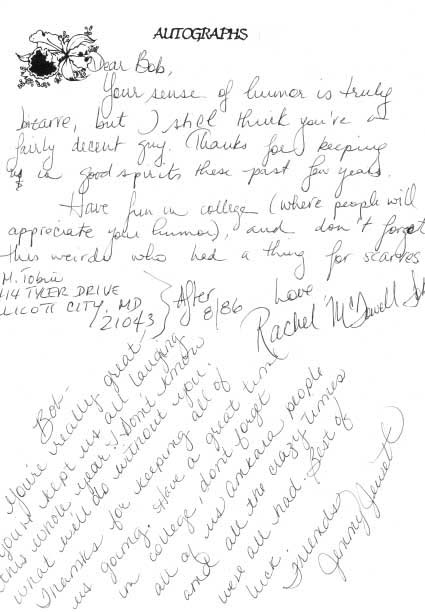 AUTOGRAPHS
Dear Bob,
Your sense of humor is truly
bizarre, but I still think you're a
fairly decent guy. Thanks for keeping
us in good spirits these past few years.
Have fun in college (where people will
appreciate your humor), and don't forget
this weirdo who had a thing for scarves
Love
Rachel McDowell
M. Tobin
414 TYLER DRIVE
LLICOTT CITY, MD
21043
After
8/86
Bob-
You're really great,
you've kept us all laughing
this whole year. I don't know
what we'll do without you.
Thanks for keeping all of
us going. Have a great time
in college, don't forget
all of us Ankara people
and all the crazy times
we've all had. Best of
luck.
Friends
Jenny Jewett